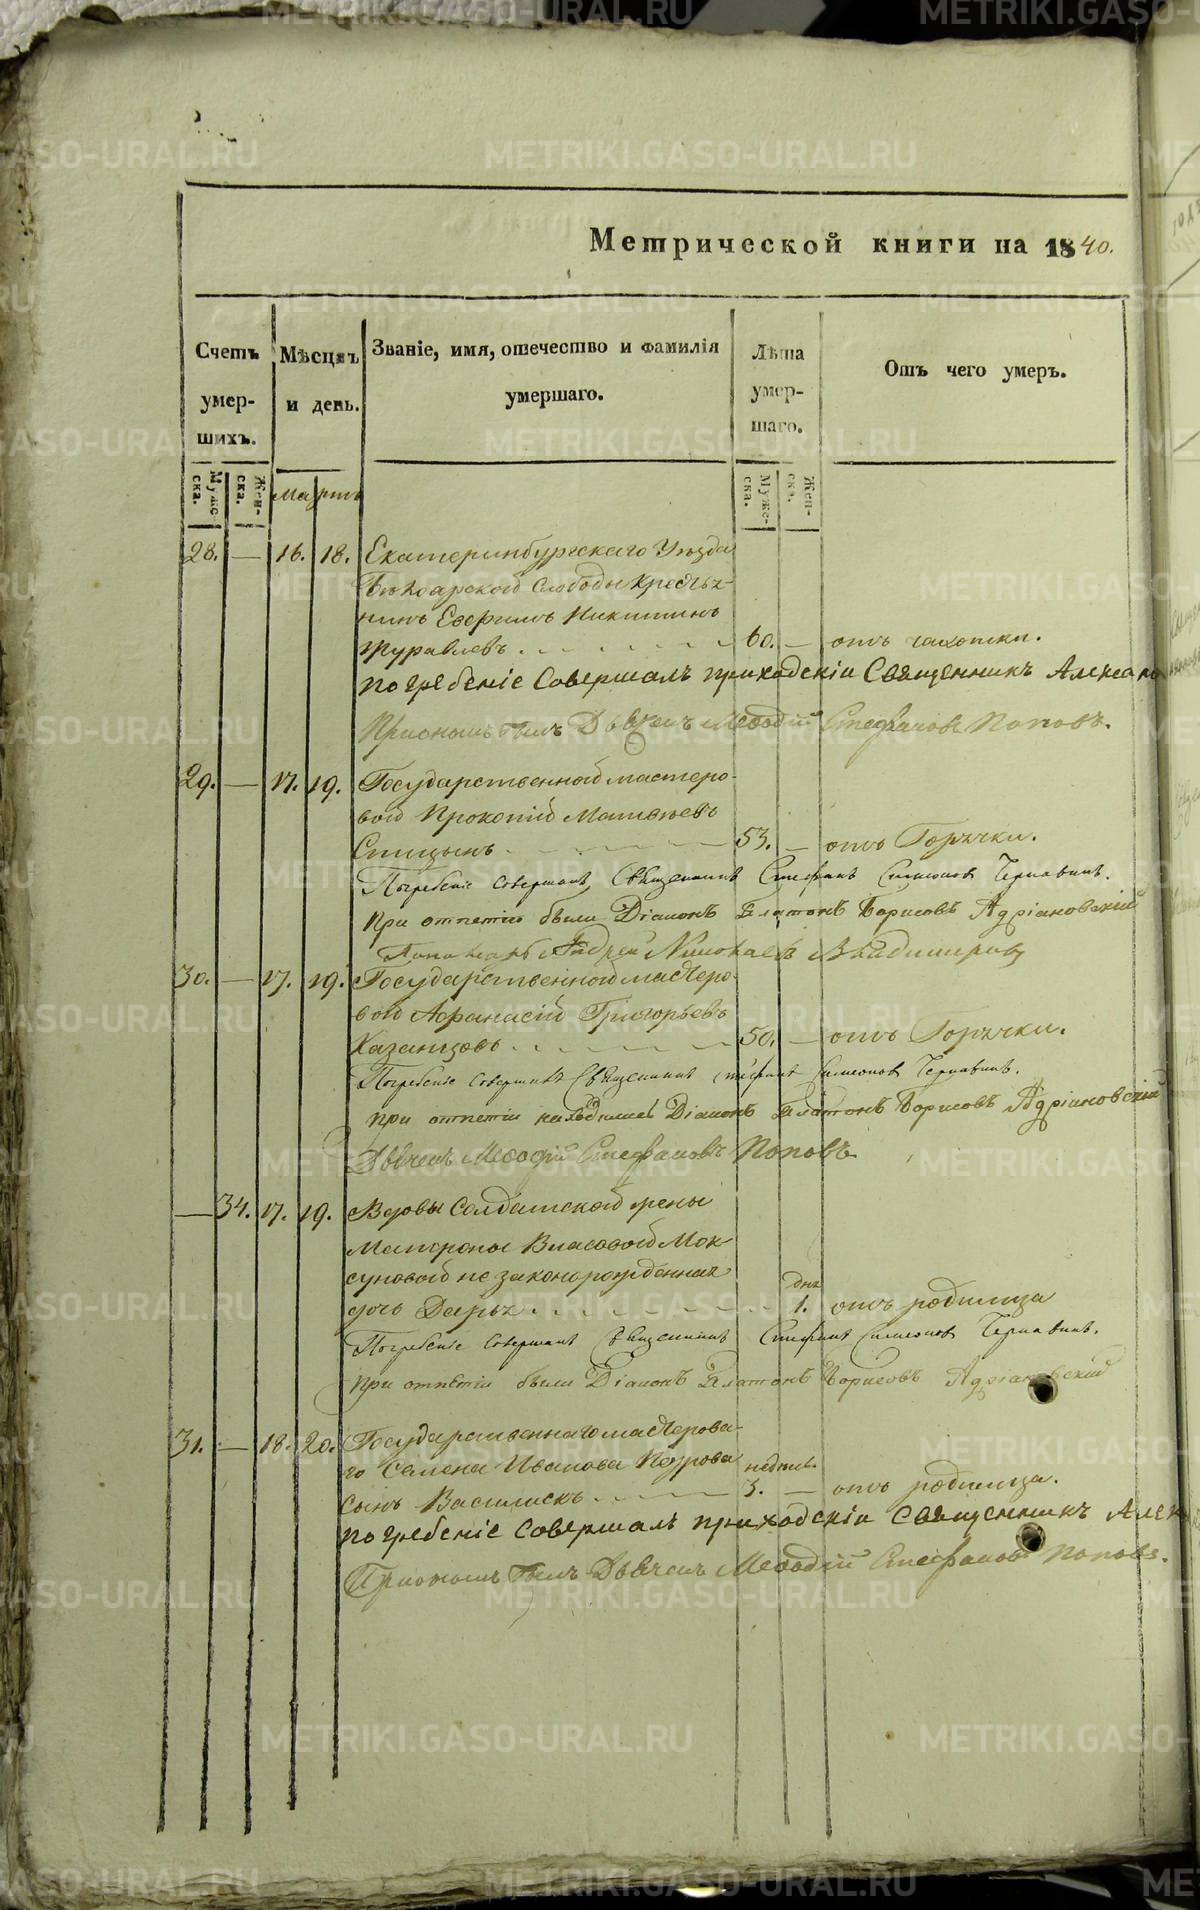 METRIKI.GASO-URAL.RU
Метрической книги на 1840.
Счетъ умер-шихъ.
Мѣсяцъ и день.
Званіе, имя, отечество и фамилія умершаго.
Лѣта умер-шаго.
Отъ чего умеръ.
Муже-ска.
Жен-ска.
Мартъ
Муже-ска.
Жен-ска.
28. — 16. 18. Екатеринбургскаго Уѣзда
Слободы Крестья-
нинъ Евфимъ Никитинъ
Журавлевъ 60. — отъ чахотки.
Погребеніе Совершалъ приходскій Священникъ
былъ Дьячекъ Меѳодій Стефановъ Поповъ.
29. — 17. 19. Государственной мастеро-
вой Прокопій Матвѣевъ
Спицынъ 53. — отъ Горячки.
Погребеніе совершалъ Священникъ Стефанъ Симеоновъ Чернавинъ.
При отпетіи были Діаконъ Платонъ Борисовъ Адріановскій
Пономарь Андрей Николаевъ Владимировъ
30. — 17. 19. Государственной мастеро-
вой Афанасій Григорьевъ
Казанцовъ 50. — отъ Горячки.
Погребеніе совершалъ Священникъ Стефанъ Симеоновъ Чернавинъ.
При отпетіи находились Діаконъ Платонъ Борисовъ Адріановскій
Дьячекъ Меѳодій Стефановъ Поповъ
— 34. 17. 19. Вдовы Солдатской жены
Матроны Власовой Мок-
суновой не законорожденная
дочь Дарья дня 1. отъ родимца
Погребеніе совершалъ Священникъ Стефанъ Симеоновъ Чернавинъ.
При отпетіи были Діаконъ Платонъ Борисовъ Адріановскій
31. — 18. 20. Государственнаго мастерова-
го Семена Иванова
сынъ Василискъ 3. — отъ родимца.
Погребеніе Совершалъ приходскій Священникъ
былъ Дьячекъ Меѳодій Стефановъ Поповъ.